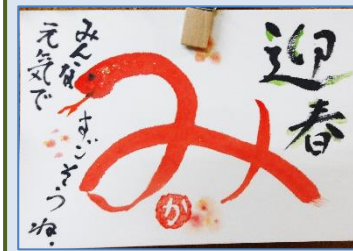 迎春
み
みんな
元気で
すごそうね。
か